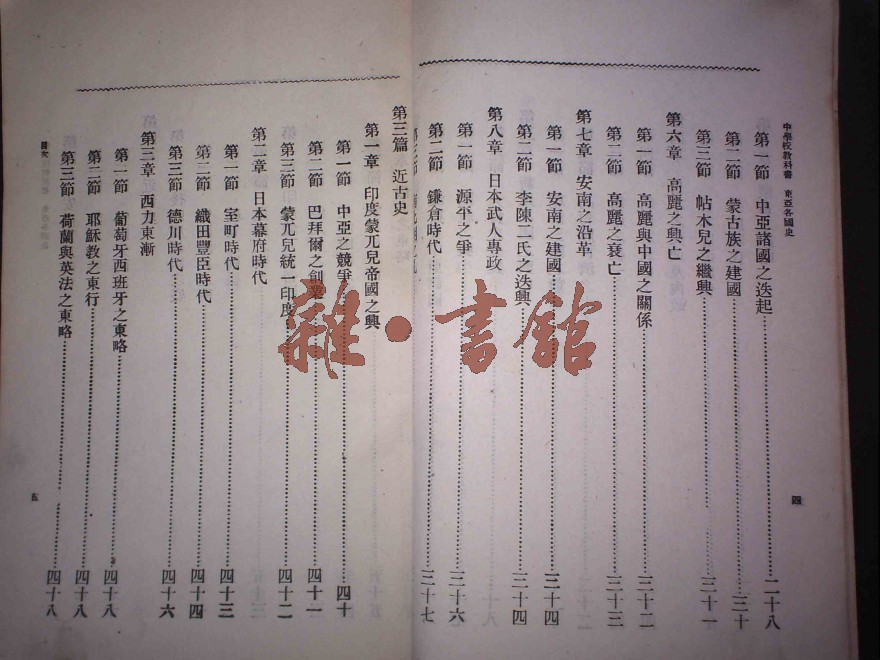 中學校教科書 東亞各國史
第一節 中亞諸國之迭起 二十八
第二節 蒙古族之建國 三十
第三節 帖木兒之繼興 三十一
第六章 高麗之興亡
第一節 高麗與中國之關係 三十二
第二節 高麗之衰亡 三十三
第七章 安南之沿革
第一節 安南之建國 三十四
第二節 李陳二氏之迭興 三十四
第八章 日本武人專政
第一節 源平之爭 三十六
第二節 鎌倉時代 三十七
四
第三篇 近古史
第一章 印度蒙兀兒帝國之興
第一節 中亞之競爭 四十
第二節 巴拜爾之創業 四十一
第三節 蒙兀兒統一印度 四十二
第二章 日本幕府時代
第一節 室町時代 四十三
第二節 織田豐臣時代 四十四
第三節 德川時代 四十六
第三章 西力東漸
第一節 葡萄牙西班牙之東略 四十八
第二節 耶穌教之東行 四十八
第三節 荷蘭與英法之東略 四十八
目次
五
雜·書館